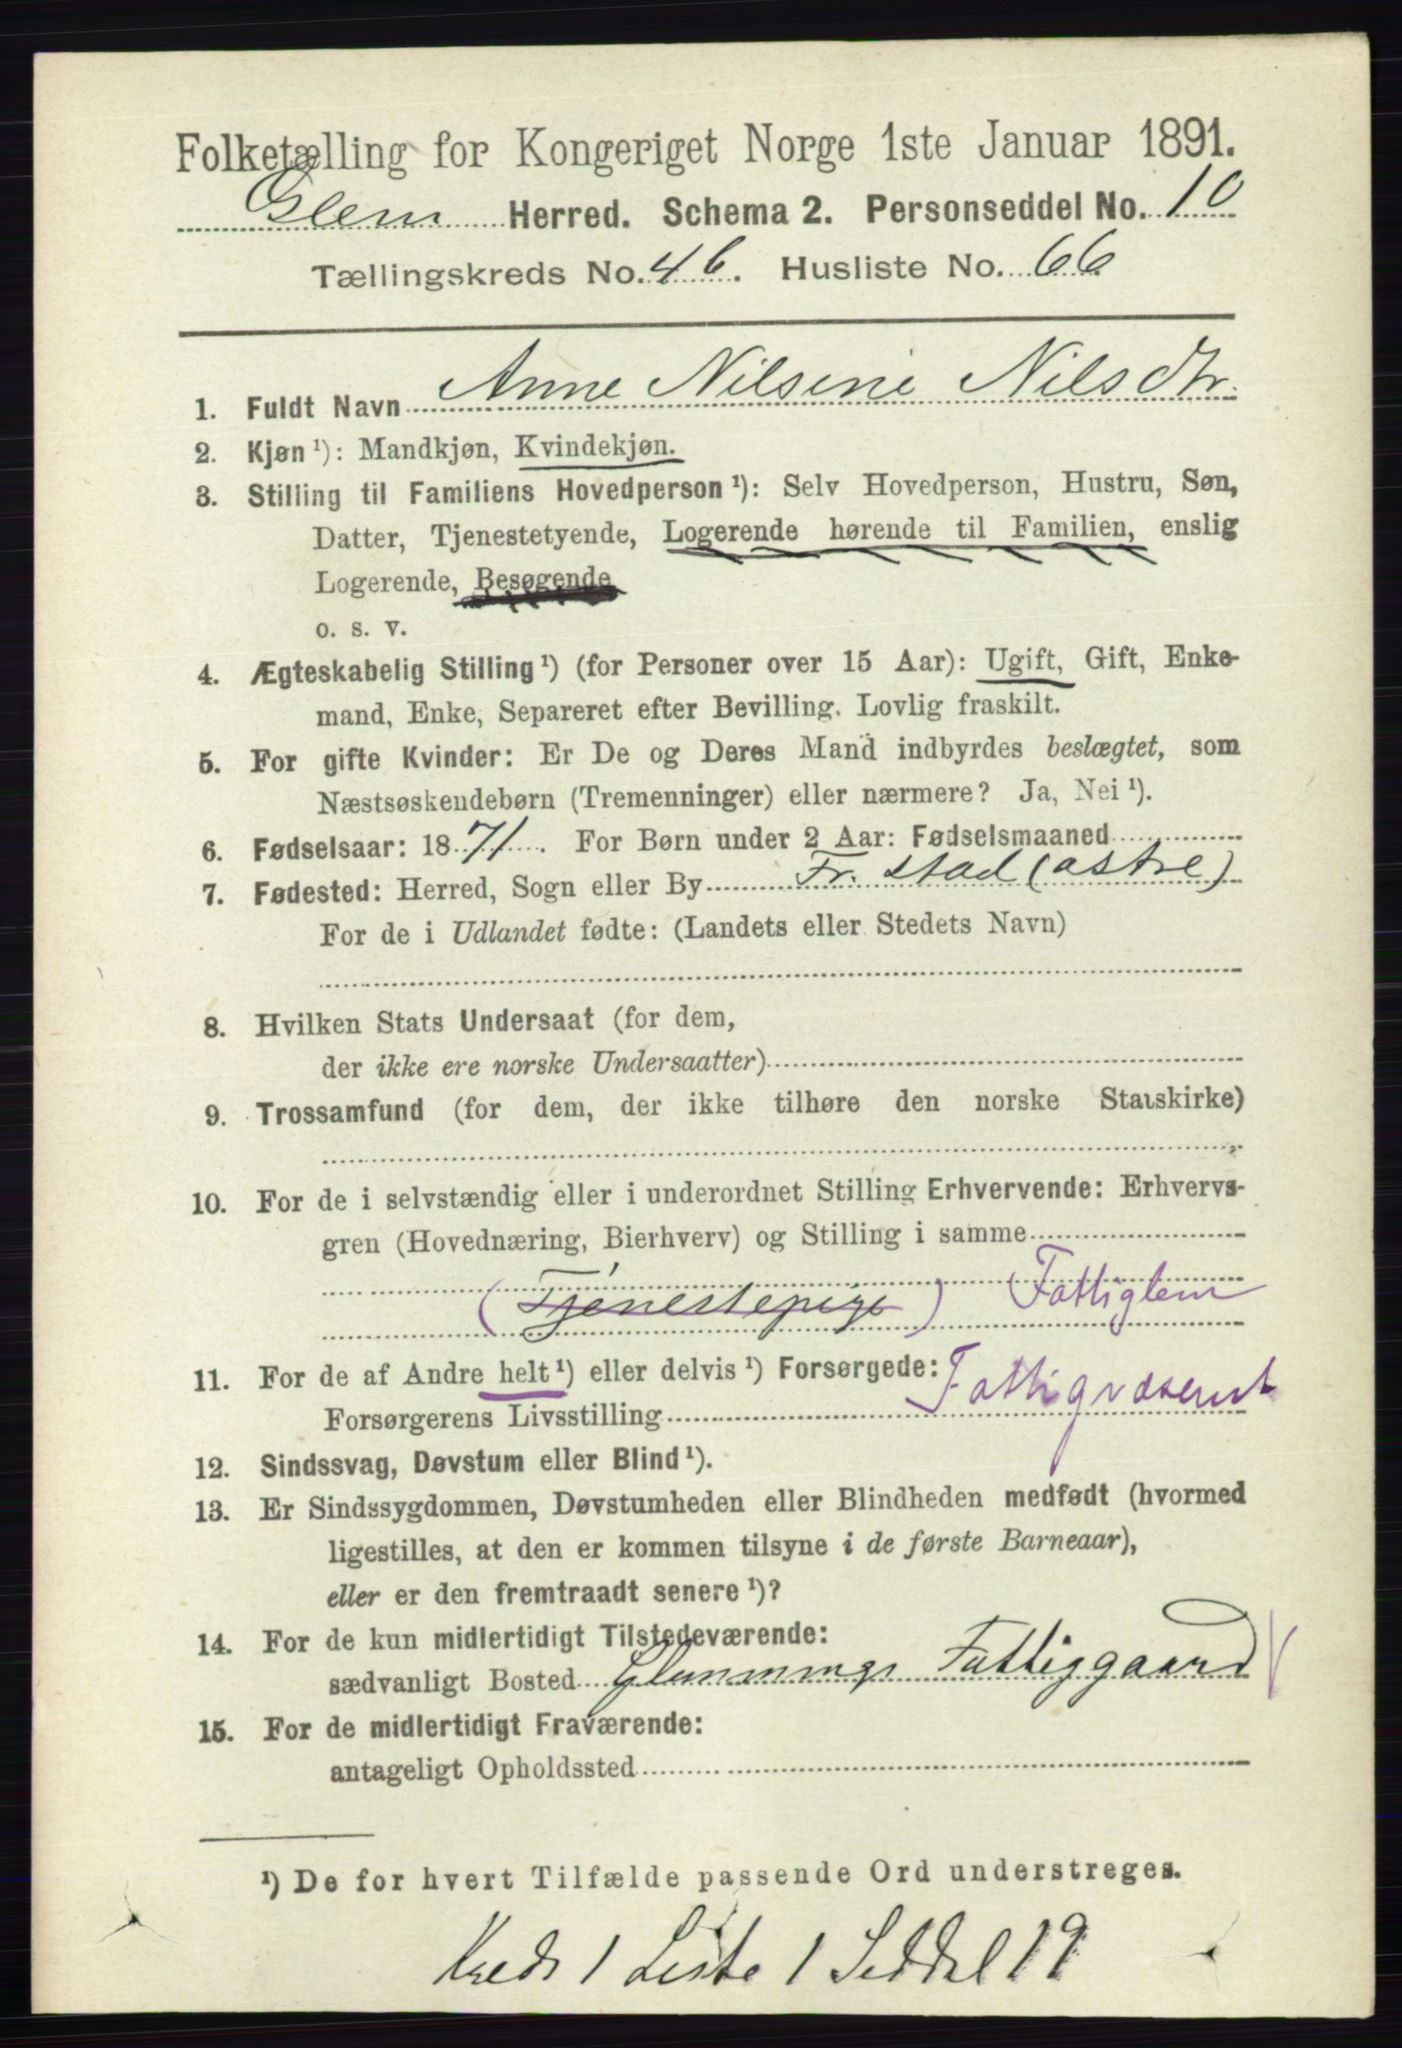 Folketælling for Kongeriget Norge 1ste Januar 1891.
Glem Herred. Schema 2. Personseddel No. 10
Tællingskreds No. 46. Husliste No. 66
1. Fuldt Navn Anne Nilsine Nilsdtr.
2. Kjøn ¹): Mandkjøn, Kvindekjøn.
3. Stilling til Familiens Hovedperson ¹): Selv Hovedperson, Hustru, Søn,
Datter, Tjenestetyende, Logerende hørende til Familien, enslig
Logerende, Besøgende
o. s. v.
4. Ægteskabelig Stilling ¹) (for Personer over 15 Aar): Ugift, Gift, Enke-
mand, Enke, Separeret efter Bevilling. Lovlig fraskilt.
5. For gifte Kvinder: Er De og Deres Mand indbyrdes beslægtet, som
Næstsøskendebørn (Tremenninger) eller nærmere? Ja, Nei ¹).
6. Fødselsaar: 1871. For Børn under 2 Aar: Fødselsmaaned
7. Fødested: Herred, Sogn eller By Fr. stad (østre)
For de i Udlandet fødte: (Landets eller Stedets Navn)
8. Hvilken Stats Undersaat (for dem,
der ikke ere norske Undersaatter)
9. Trossamfund (for dem, der ikke tilhøre den norske Statskirke)
10. For de i selvstændig eller i underordnet Stilling Erhvervende: Erhvervs-
gren (Hovednæring, Bierhverv) og Stilling i samme
(Tjenestepige) Fattiglem
11. For de af Andre helt ¹) eller delvis ¹) Forsørgede:
Forsørgerens Livsstilling Fattigvæsenet
12. Sindssvag, Døvstum eller Blind ¹).
13. Er Sindssygdommen, Døvstumheden eller Blindheden medfødt (hvormed
ligestilles, at den er kommen tilsyne i de første Barneaar),
eller er den fremtraadt senere ¹)?
14. For de kun midlertidigt Tilstedeværende:
sædvanligt Bosted Glemmings Fattiggaard
15. For de midlertidigt Fraværende:
antageligt Opholdssted
¹) De for hvert Tilfælde passende Ord understreges.
Kreds 1 Liste 1 Seddel 19